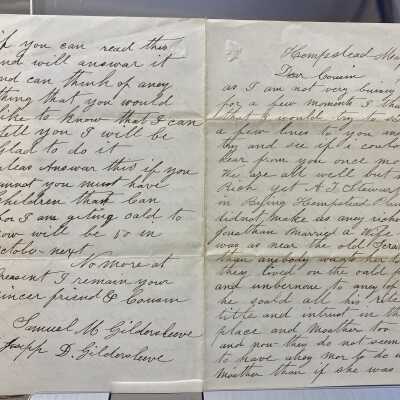 if you can read this
and will answer it
and can think of aney
thing that you would
like to know that I can
tell you I will be
glad to do it
pleas Answar this if you
cannot you must have
Children that Can
for I am geting oald to
now will be 50 in
Octobo next
No more at
Preasent I remain your
sincer friend & Cousin
Samuel M Gildersleeve
Joseph D. Gildersleeve
Hempstead May
Dear Cousin
as I am not very buisy
for a few moments I
that I would try to
a few lines to you and
try and see if I could
hear from you once mo
We are all well but
Rich yet A. T. Stewart
in Bying Hempstead
did not make us aney richer
Jonathan Married a Wife
was as near the old
than anybody want her to
they lived on the oald
and unbenone to aney of
he soald all his
title and intrust in the
place and Moather too
and now they do not seem
to have aney mor to do
Moather than if she was